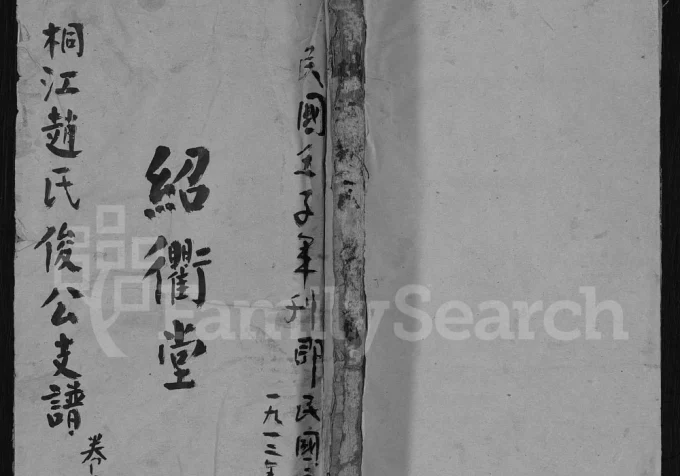 民國壬子年刊即民國
一九一二年
紹衢堂
桐江趙氏俊公支譜
卷
FamilySearch